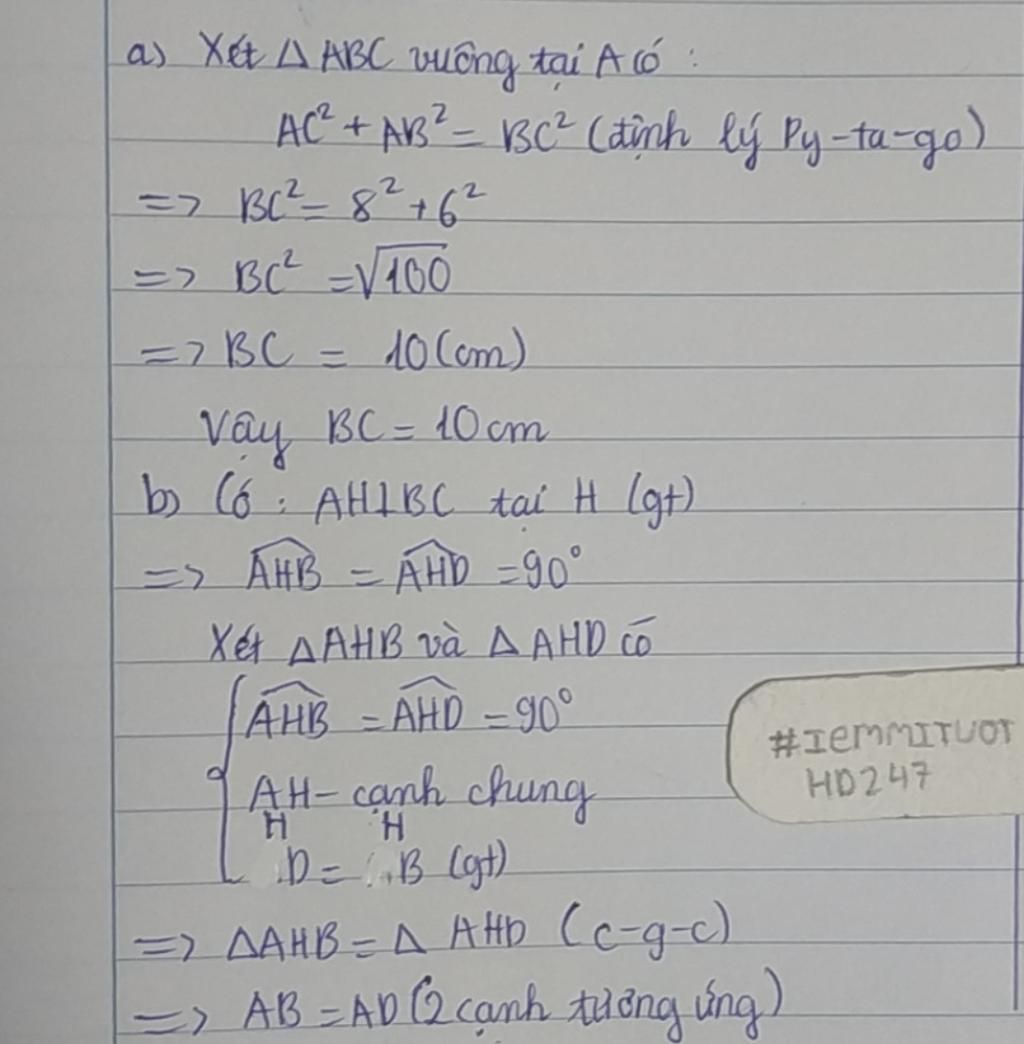 a) Xét △ ABC vuông tại A có :
AC² + AB² = BC² (định lý Py-ta-go)
=> BC² = 8² + 6²
=> BC² = √100
=> BC = 10 (cm)
Vậy BC = 10 cm
b) Có : AH⊥BC tại H (gt)
=> \widehat{AHB} = \widehat{AHD} = 90°
Xét △AHB và △AHD có
{ \widehat{AHB} = \widehat{AHD} = 90°
#IEMMITUOT
HD247
AH - cạnh chung
HD = HB (gt)
=> △AHB = △ AHD (c-g-c)
=> AB = AD (2 cạnh tương ứng)